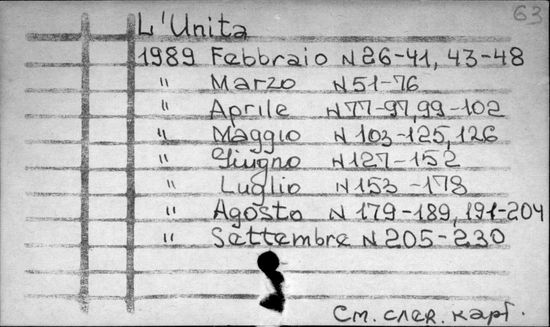 63
L'Unita
1989 Febbraio N26-41, 43-48
" Marzo N51-76
" Aprile N77-97,99-102
" Maggio N103-125,126
" Giugno N127-152
" Luglio N153-178
" Agosto N179-189,191-204
" Settembre N205-230
См. след. карт.